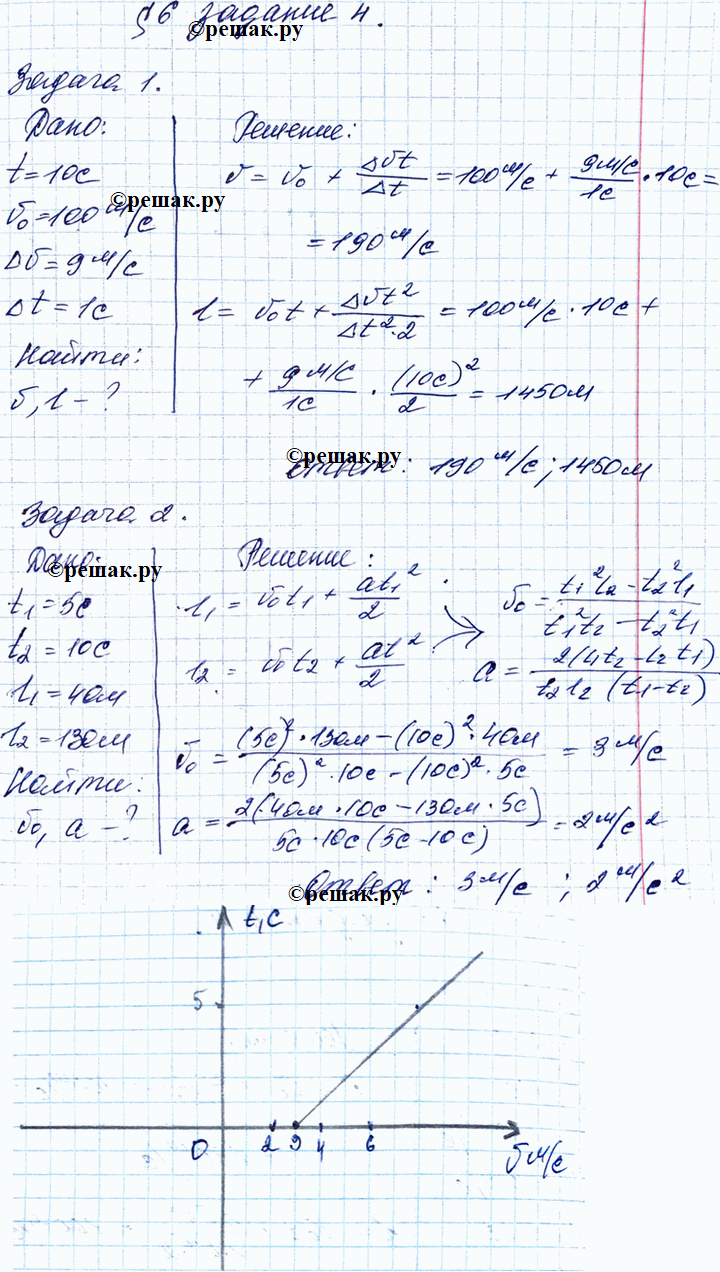 §6 задание 4.
©решак.ру
Задача 1.
Дано:
t=10с
©решак.ру
υ₀=100 м/с
Δυ=9 м/с
Δt=1с
Найти:
υ, l - ?
Решение:
υ = υ₀ + Δυt/Δt = 100 м/с + 9 м/с/1с · 10с =
= 190 м/с
l = υ₀t + Δυt²/Δt²·2 = 100 м/с · 10с +
+ 9 м/с/1с · (10с)²/2 = 1450м
©решак.ру
Ответ: 190 м/с; 1450м
Задача 2.
Дано:
©решак.ру
t₁=5с
t₂=10с
l₁=40м
l₂=130м
Найти:
υ₀, a - ?
Решение:
l₁ = υ₀t₁ + at₁²/2
l₂ = υ₀t₂ + at²/2
υ₀ = t₁²l₂ - t₂²l₁/t₁²t₂ - t₂²t₁
a = 2(l₁t₂ - l₂t₁)/t₂l₂(t₁-t₂)
υ₀ = (5с)²·130м - (10с)²·40м/(5с)²·10с - (10с)²·5с = 3 м/с
a = 2(40м·10с - 130м·5с)/5с·10с(5с-10с) = 2м/с²
Ответ: 3 м/с; 2 м/с²
©решак.ру
t,с
5
0 2 3 4 6
υ м/с